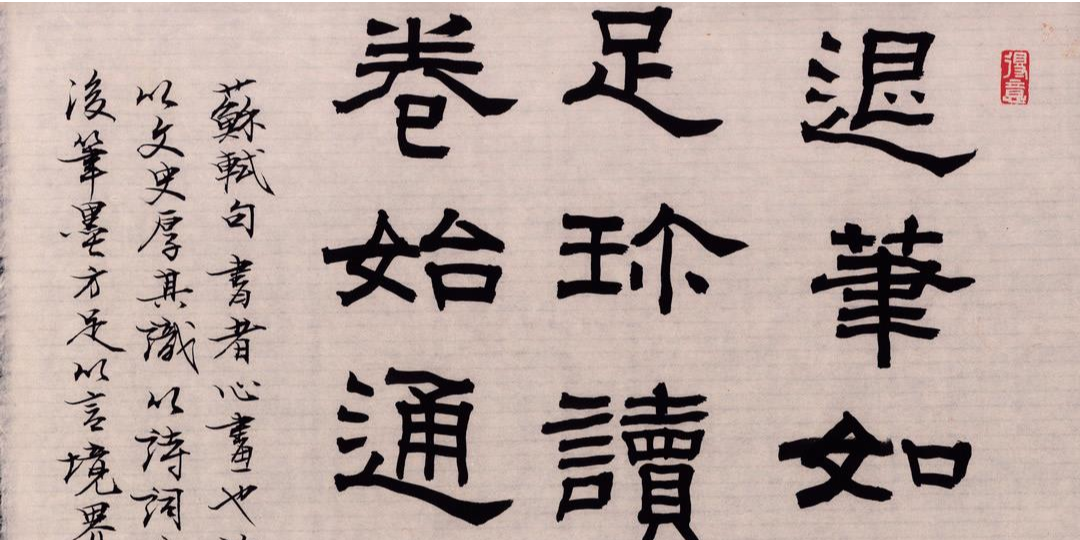 得意
退筆如
足珎讀
卷始通
蘇軾句書者心畫也
以文史厚其識以詩詞
後筆墨方足以言境界